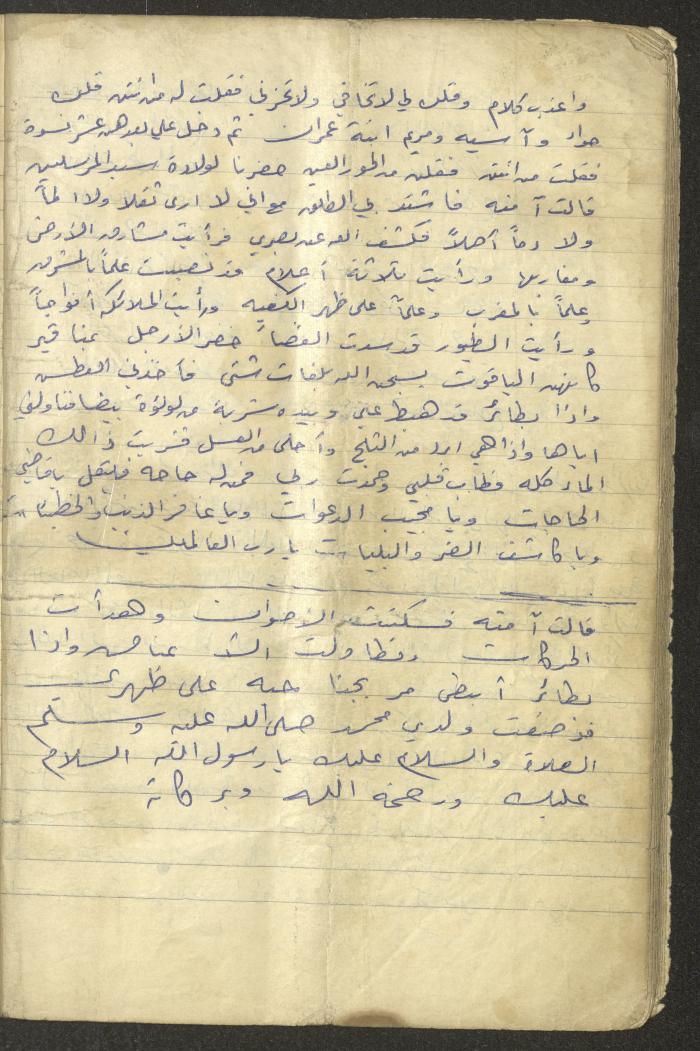 واعذب كلام وقلن لي لا تخافي ولا تحزني فقلت لهن من انتن قلن
حواء وآسيه ومريم ابنة عمران ثم دخل علي بعدهن عشر نسوة
فقلت من انتن فقلن من الحور العين حضرنا لولادة سيد المرسلين
قالت آمنه فاشتد بي الطلق مع اني لا ارى ثقلا ولا الماً
ولا دماً أصلاً فكشف الله عن بصري فرأيت مشارق الأرض
ومغاربها ورأيت ثلاثة أعلام قد نصبت علماً بالمشرق
وعلماً بالمغرب وعلماً على ظهر الكعبه ورأيت الملائكه أفواجاً
ورأيت الطيور قد سدت الفضاء حمر الأرجل بمناقير
كأنهن الياقوت يسبحن الله بلغات شتى فأخذني العطش
واذا بطائر قد هبط علي وبيده شربة من لؤلؤة بيضا فناولني
اياها واذا هي ابرد من الثلج وأحلى من العسل فشربت ذالك
الماء كله فطاب قلبي وحمدت ربي فمن له حاجه فليقل يا قاضي
الحاجات ويا مجيب الدعوات ويا غافر الذنب والخطيئات
ويا كاشف الضر والبليات يا رب العالمين
قالت آمنه فسكتت الأصوات وهدأت
الحركات وتطاولت الأعناق واذا
بطائر أبيض مر بجناحيه على ظهري
فوضعت ولدي محمد صلى الله عليه وسلم
الصلاة والسلام عليك يا رسول الله السلام
عليك ورحمة الله وبركاته